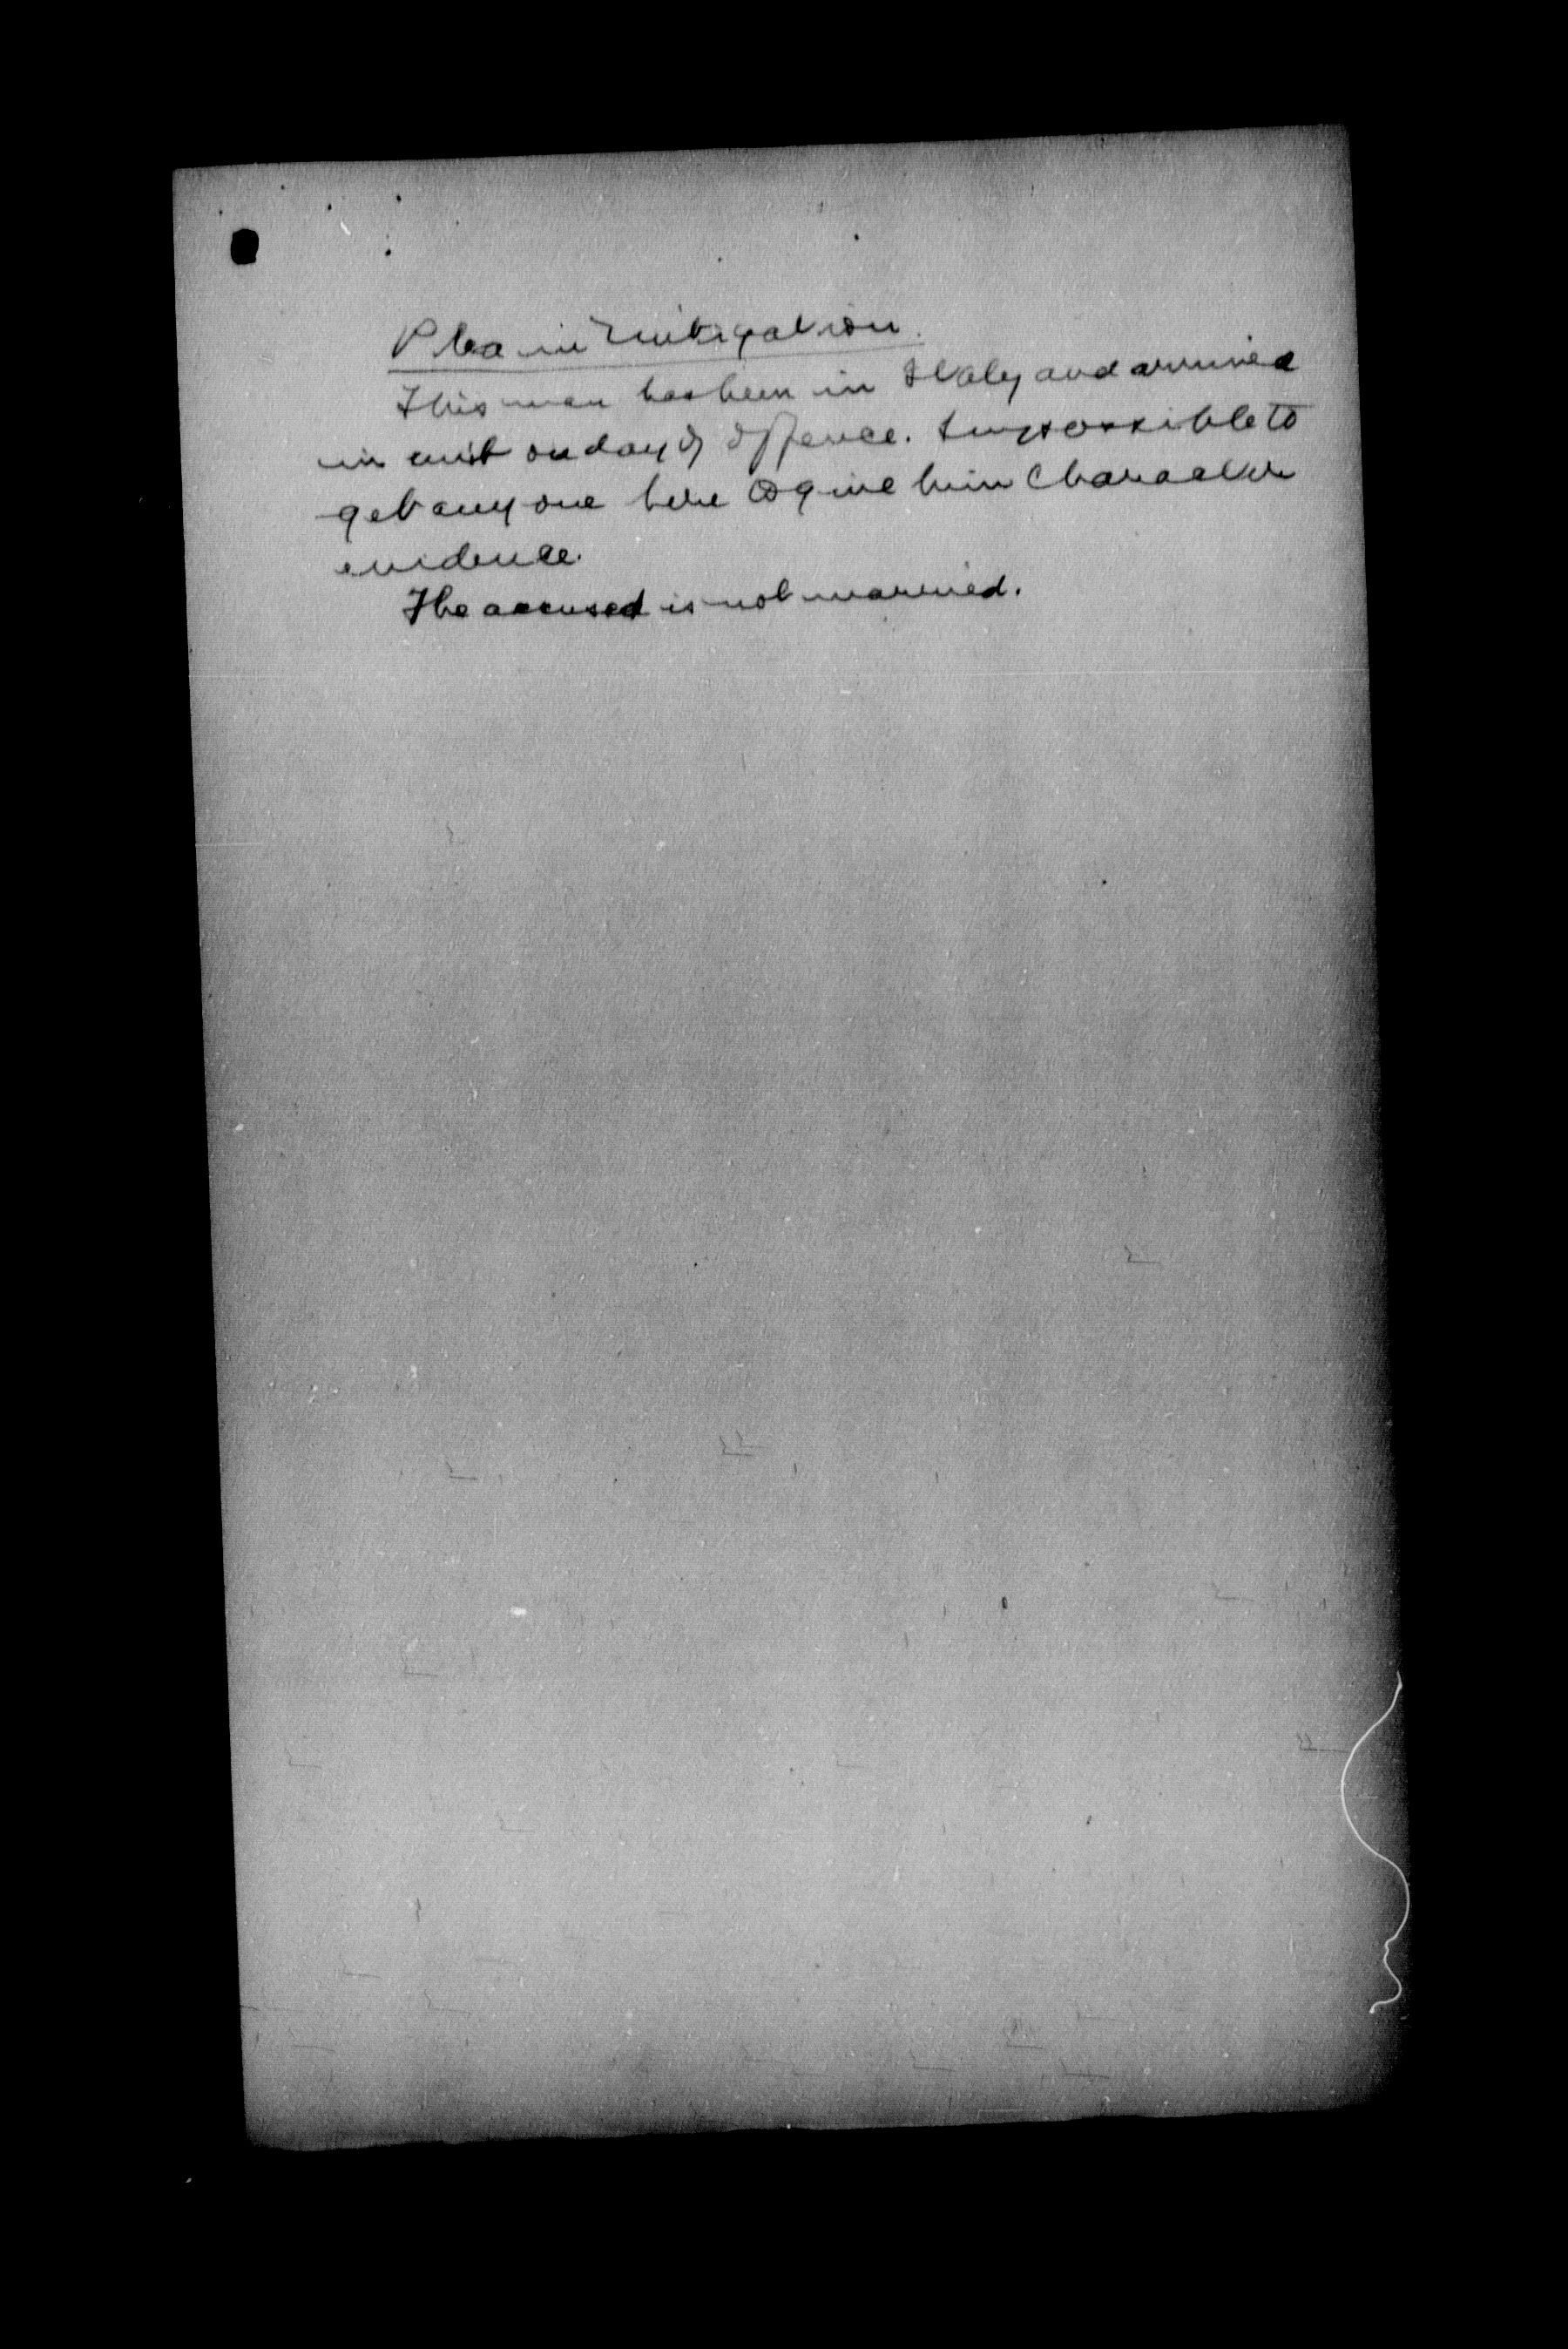 Plea in Mitigation.
This man has been in Italy and arrived
in unit on day of offence. Impossible to
get any one here to give him Character
evidence.
The accused is not married.